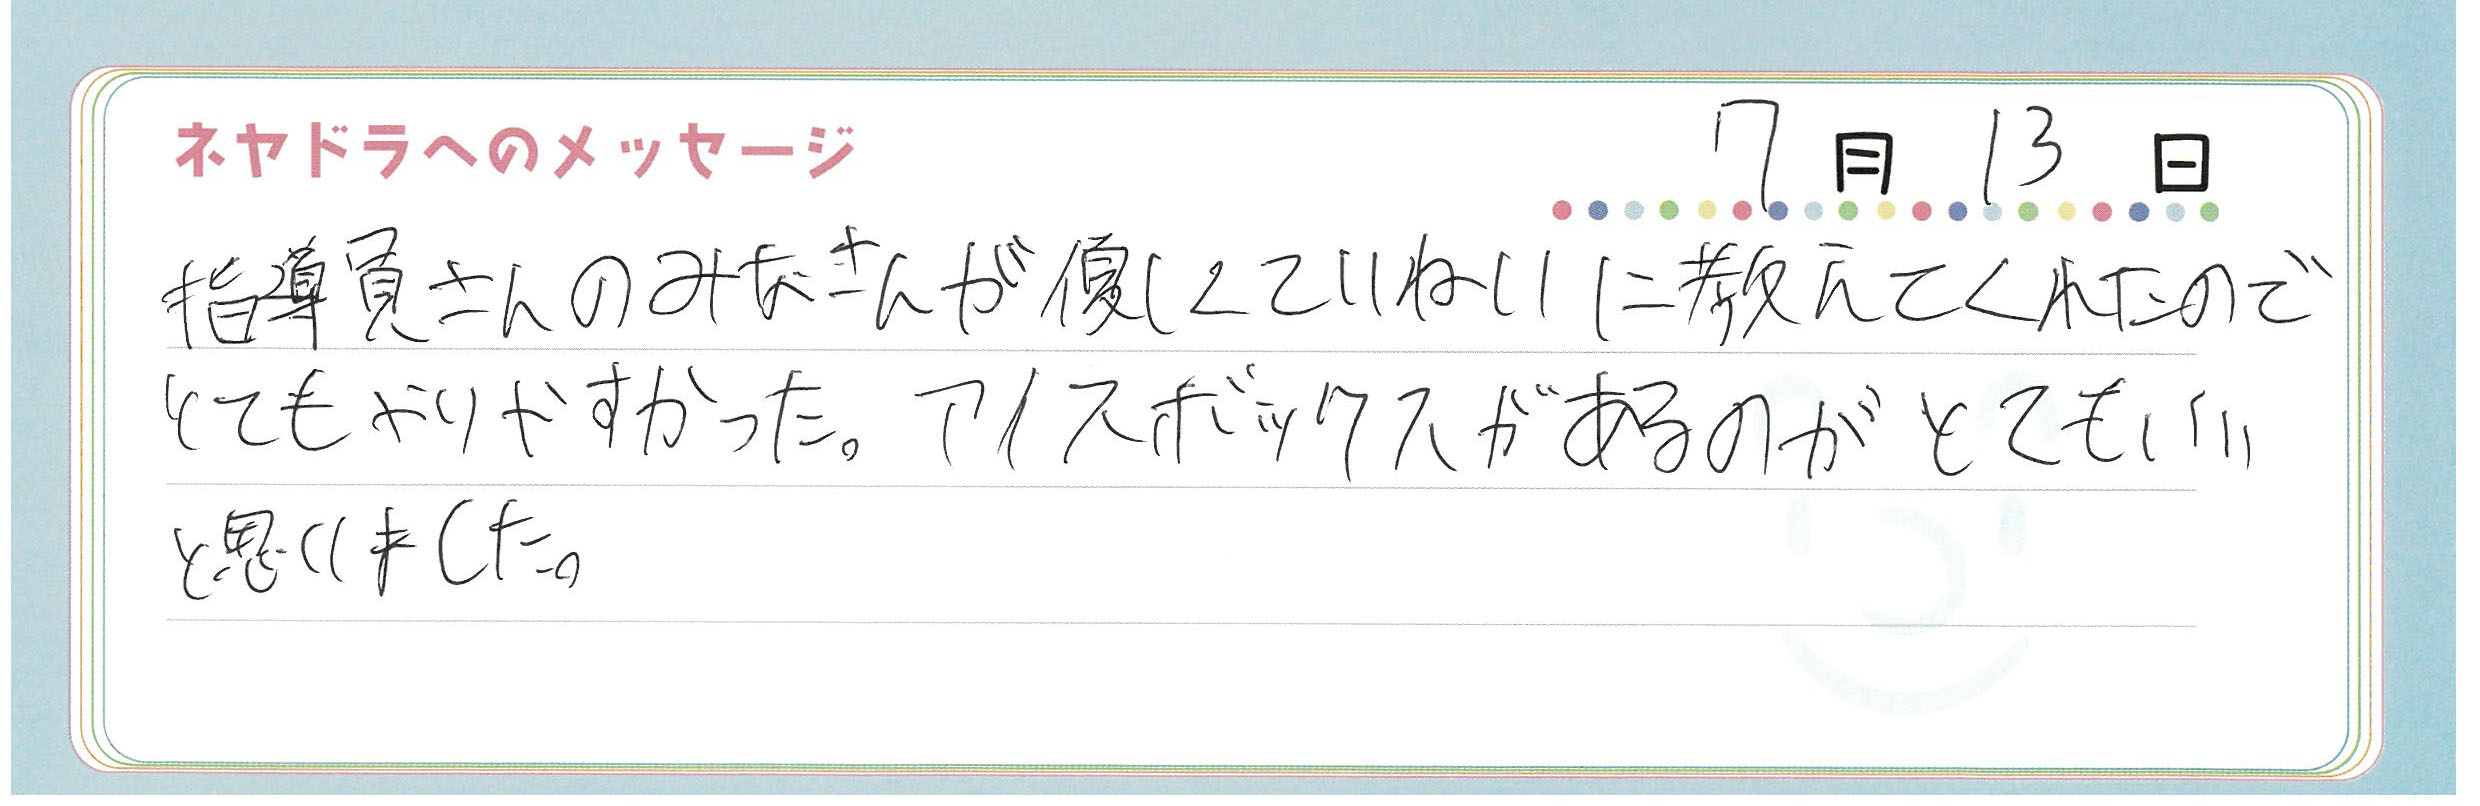 ネヤドラへのメッセージ
7月13日
指導員さんのみなさんが優しくていねいに教えてくれたので
とてもやりやすかった。アイスボックスがあるのがとてもいい
と思いました。